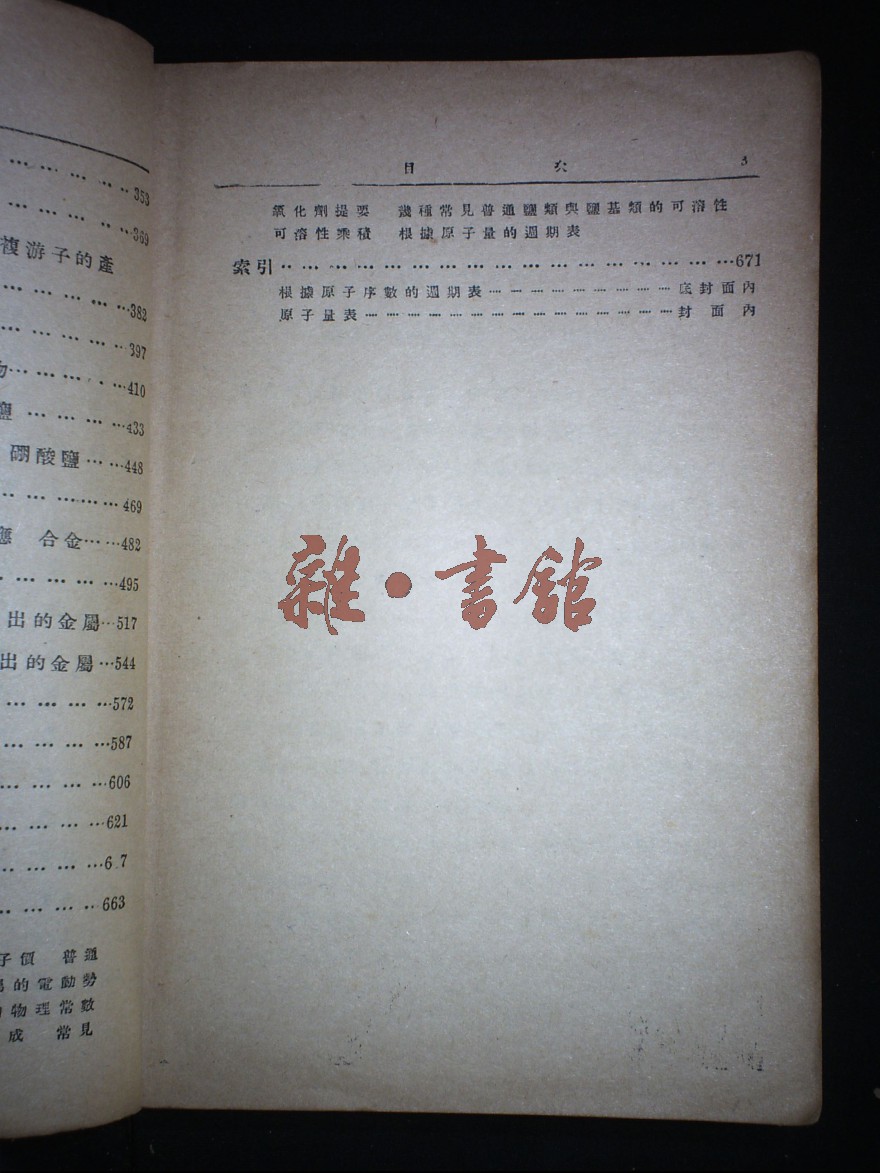 …… … … … ‥353
… … … … … ‥369
複游子的產
… … … … …382
… … … … ‥397
… … … …410
鹽 … … … …433
硼酸鹽 … …448
… … … … …469
合金……482
… … … … …495
出的金屬…517
出的金屬…544
… … … …572
… … … …587
… … … …606
… … … …621
… … … …6 7
… … … … ‥663
子價 普通
的電動勢
物理常數
成 常見
目 次 3
氧化劑提要 幾種常見普通鹽類與鹽基類的可溶性
可溶性乘積 根據原子量的週期表
索引… … … … … … … … … … … … … … … … …671
根據原子序數的週期表… … … … … … … … …底封面內
原子量表… … … … … … … … … … … … … …封面內
雜·書館